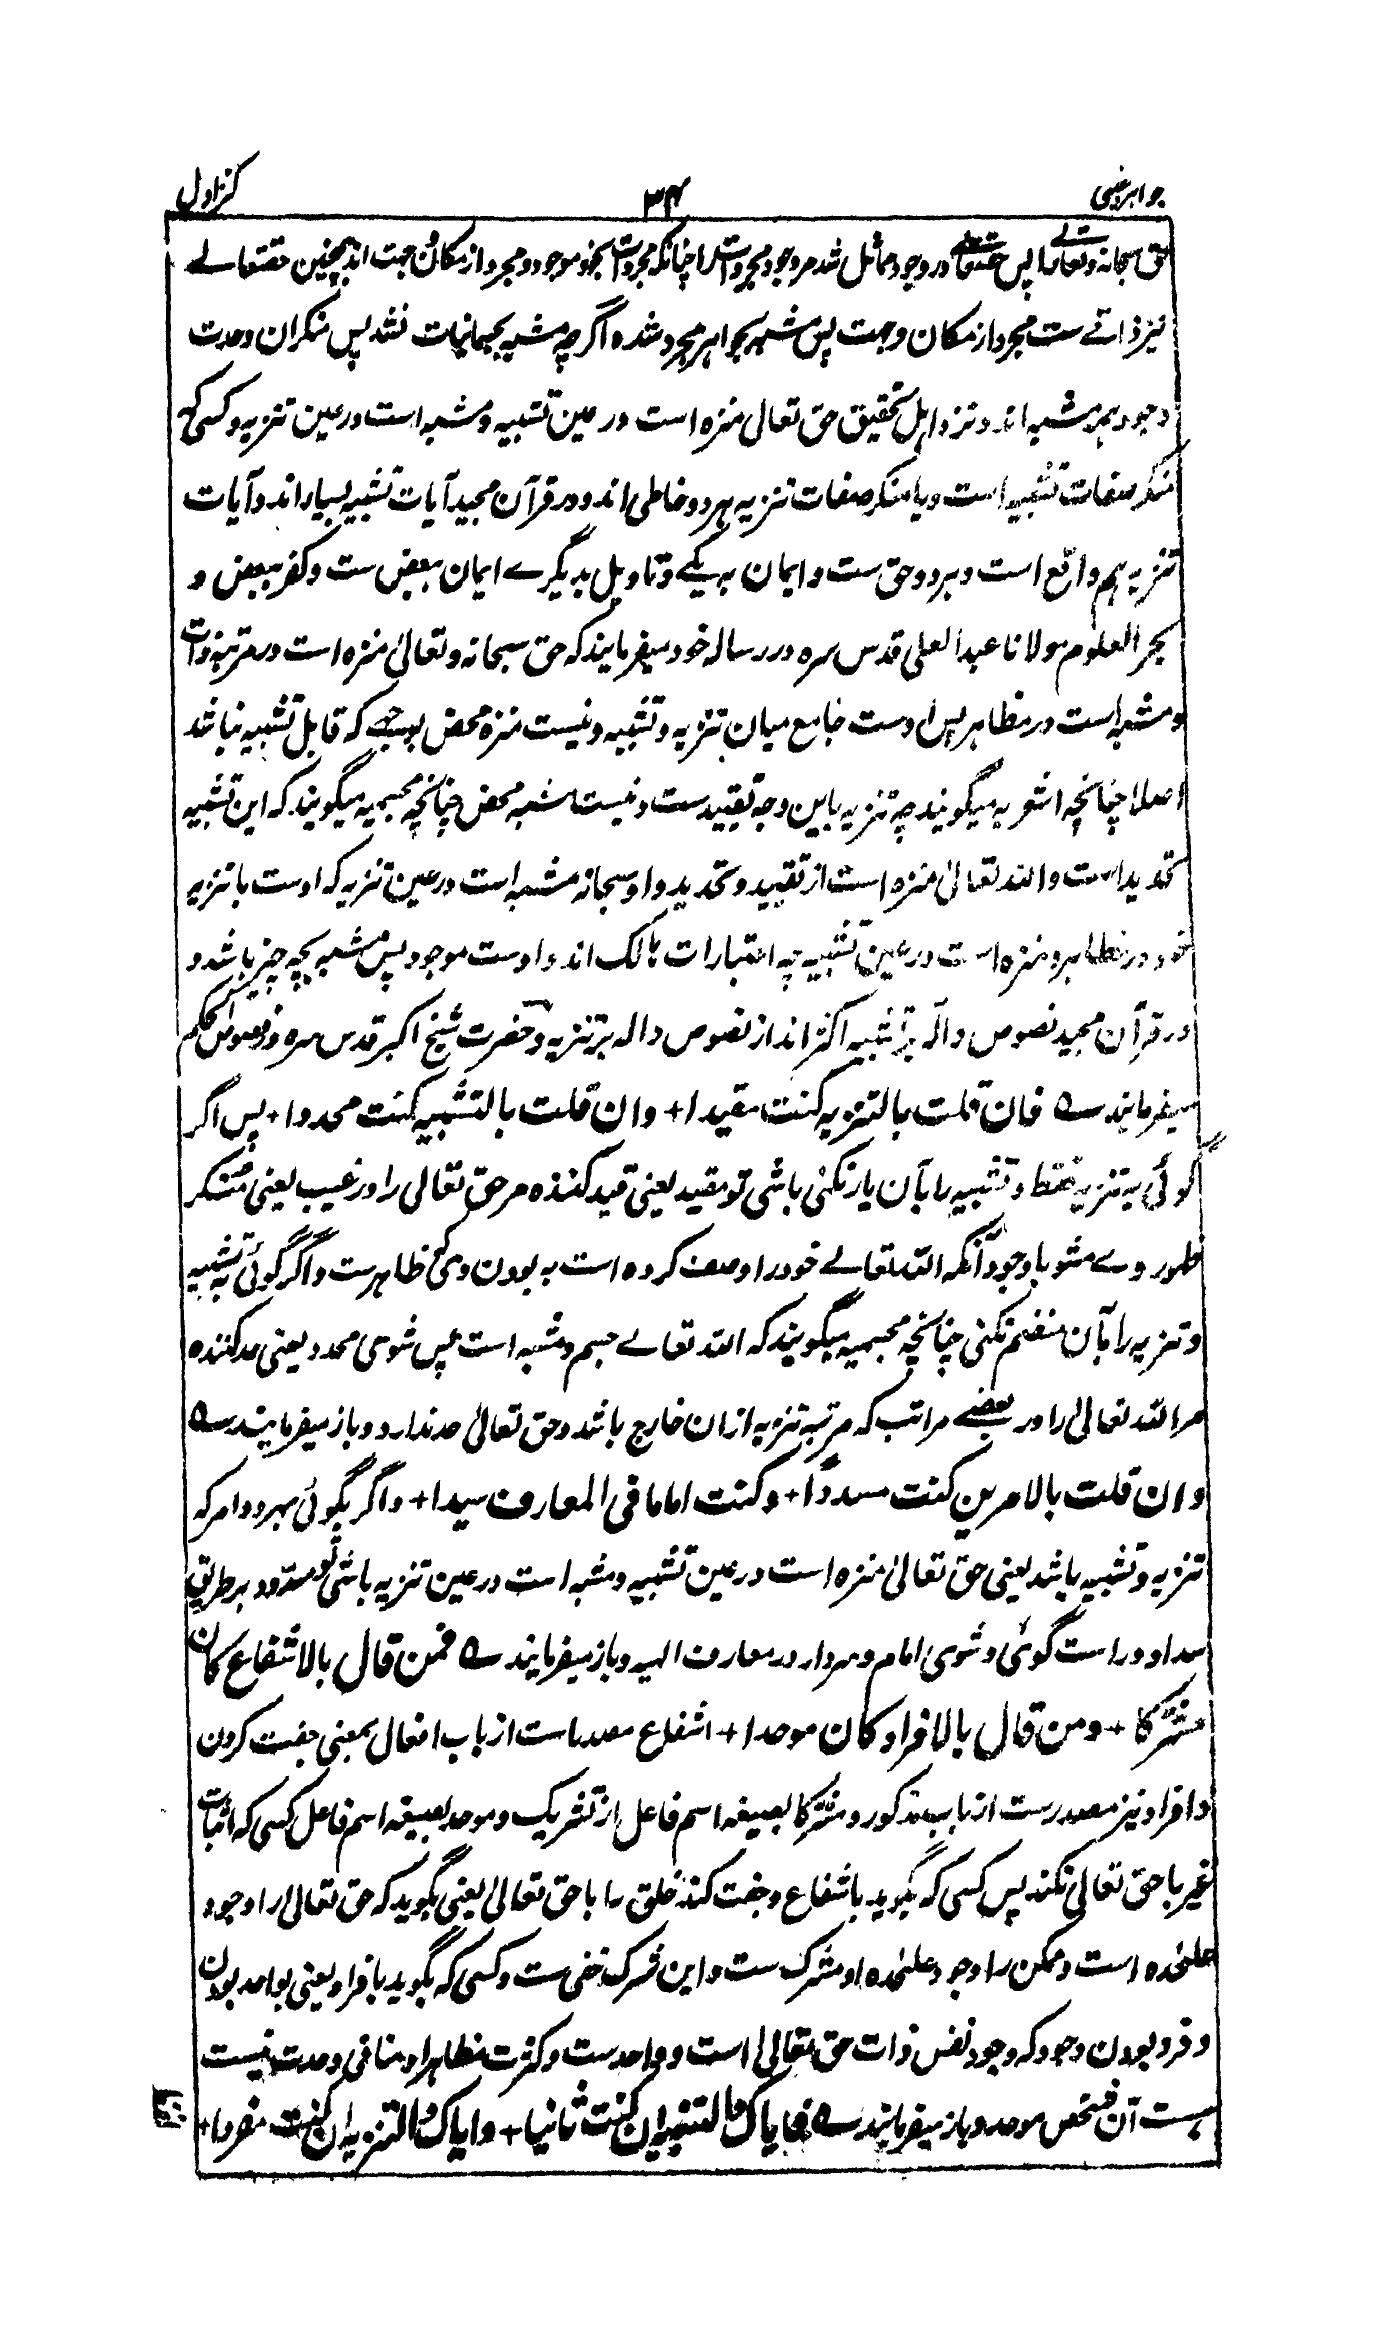 جواهر غیبی ۳۴ کنز اول
حق سبحانه و تعالی را پس حقتعالی در وجود مماثل شد مر وجود مجردات را چنانکه مجردات بخود موجود و مجرد از مکان و جهت اند همچنین حقتعالے
نیز ذاتے ست مجرد از مکان و جهت پس مشبه بجواهر مجرد شده اگرچه مشبه بجسمانیات نشد پس منکران وحدت
وجود همه مشبه اند و نزد اهل تحقیق حق تعالی منزه است در عین تشبیه و مشبه است در عین تنزیه و کسی که
منکر صفات تشبیه است و یا منکر صفات تنزیه هر دو خاطی اند و در قرآن مجید آیات تشبیه بسیار اند و آیات
تنزیه هم واقع است و هر دو حق ست و ایمان به یکے و تاویل بدیگرے ایمان ببعض ست و کفر ببعض و
بحر العلوم مولانا عبد العلی قدس سره در رساله خود میفرمایند که حق سبحانه و تعالیٰ منزه است در مرتبه ذات
و مشبه است در مظاهر پس اوست جامع میان تنزیه و تشبیه و نیست منزه محض بوجهے که قابل تشبیه نباشد
اصلا چنانچه اشعریه میگویند چه تنزیه باین وجه تقیید ست و نیست مشبه محض چنانچه مجسمیه میگویند که این تشبیه
تحدید است و الله تعالیٰ منزه است از تقیید و تحدید و او سبحانه مشبه است در عین تنزیه که اوست با تنزیه
خود در مظاهر و منزه است در عین تشبیه چه اعتبارات هالک اند و اوست موجود پس مشبه بچه چیز باشد و
در قرآن مجید نصوص داله بر تشبیه اکثر اند از نصوص داله بر تنزیه و حضرت شیخ اکبر قدس سره در فصوص الحکم
میفرمایند ے فان قلت بالتنزیه کنت مقیدا + وان قلت بالتشبیه کنت محددا + پس اگر
گوئی به تنزیه فقط و تشبیه را بآن یار نکنی باشی تو مقید یعنی قید کننده مر حق تعالی را در غیب یعنی منکر
ظهور وے مشو باوجود آنکه الله تعالے خود را وصف کرده است به بودن وی که ظاهرست و اگر گوئی به تشبیه
و تنزیه را بآن منضم نکنی چنانچه مجسمیه میگویند که الله تعالے جسم و مشبه است پس شوی محدد یعنی حد کننده
مر الله تعالی را در بعضے مراتب که مرتبه تنزیه ازان خارج باشد و حق تعالیٰ حد ندارد و باز میفرمایند ے
وان قلت بالامرین کنت مسددا + وکنت اماما فی المعارف سیدا + و اگر بگوئی بهر دو امر که
تنزیه و تشبیه باشد یعنی حق تعالیٰ منزه است در عین تشبیه و مشبه است در عین تنزیه باشی تو مسدود بر طریق
سداد و راست گوئی و شوی امام و سردار در معارف الهیه و باز میفرمایند ے فمن قال بالاشفاع کان
مشرکا + ومن قال بالافراد کان موحدا + اشفاع مصدر است از باب افعال بمعنی جفت کردن
و افراد نیز مصدرست از باب مذکور و مشرکا بصیغه اسم فاعل از تشریک و موحد بصیغه اسم فاعل کسی که اثبات
غیر با حق تعالیٰ نکند پس کسی که بگوید باشفاع و جفت کند خلق را با حق تعالیٰ یعنی بگوید که حق تعالیٰ را وجود
علیٰحده است و ممکن را وجود علیٰحده او مشرک ست و این شرک خفی ست و کسی که بگوید بافراد یعنی بواحد بودن
و فرد بودن وجود که وجود نفس ذات حق تعالیٰ است و واحدست و کثرت مظاهر او منافی وحدت نیست
هست آن شخص موحد و باز میفرمایند ے فایاک والتشبیه ان کنت ثانیا + وایاک والتنزیه ان کنت مفردا +